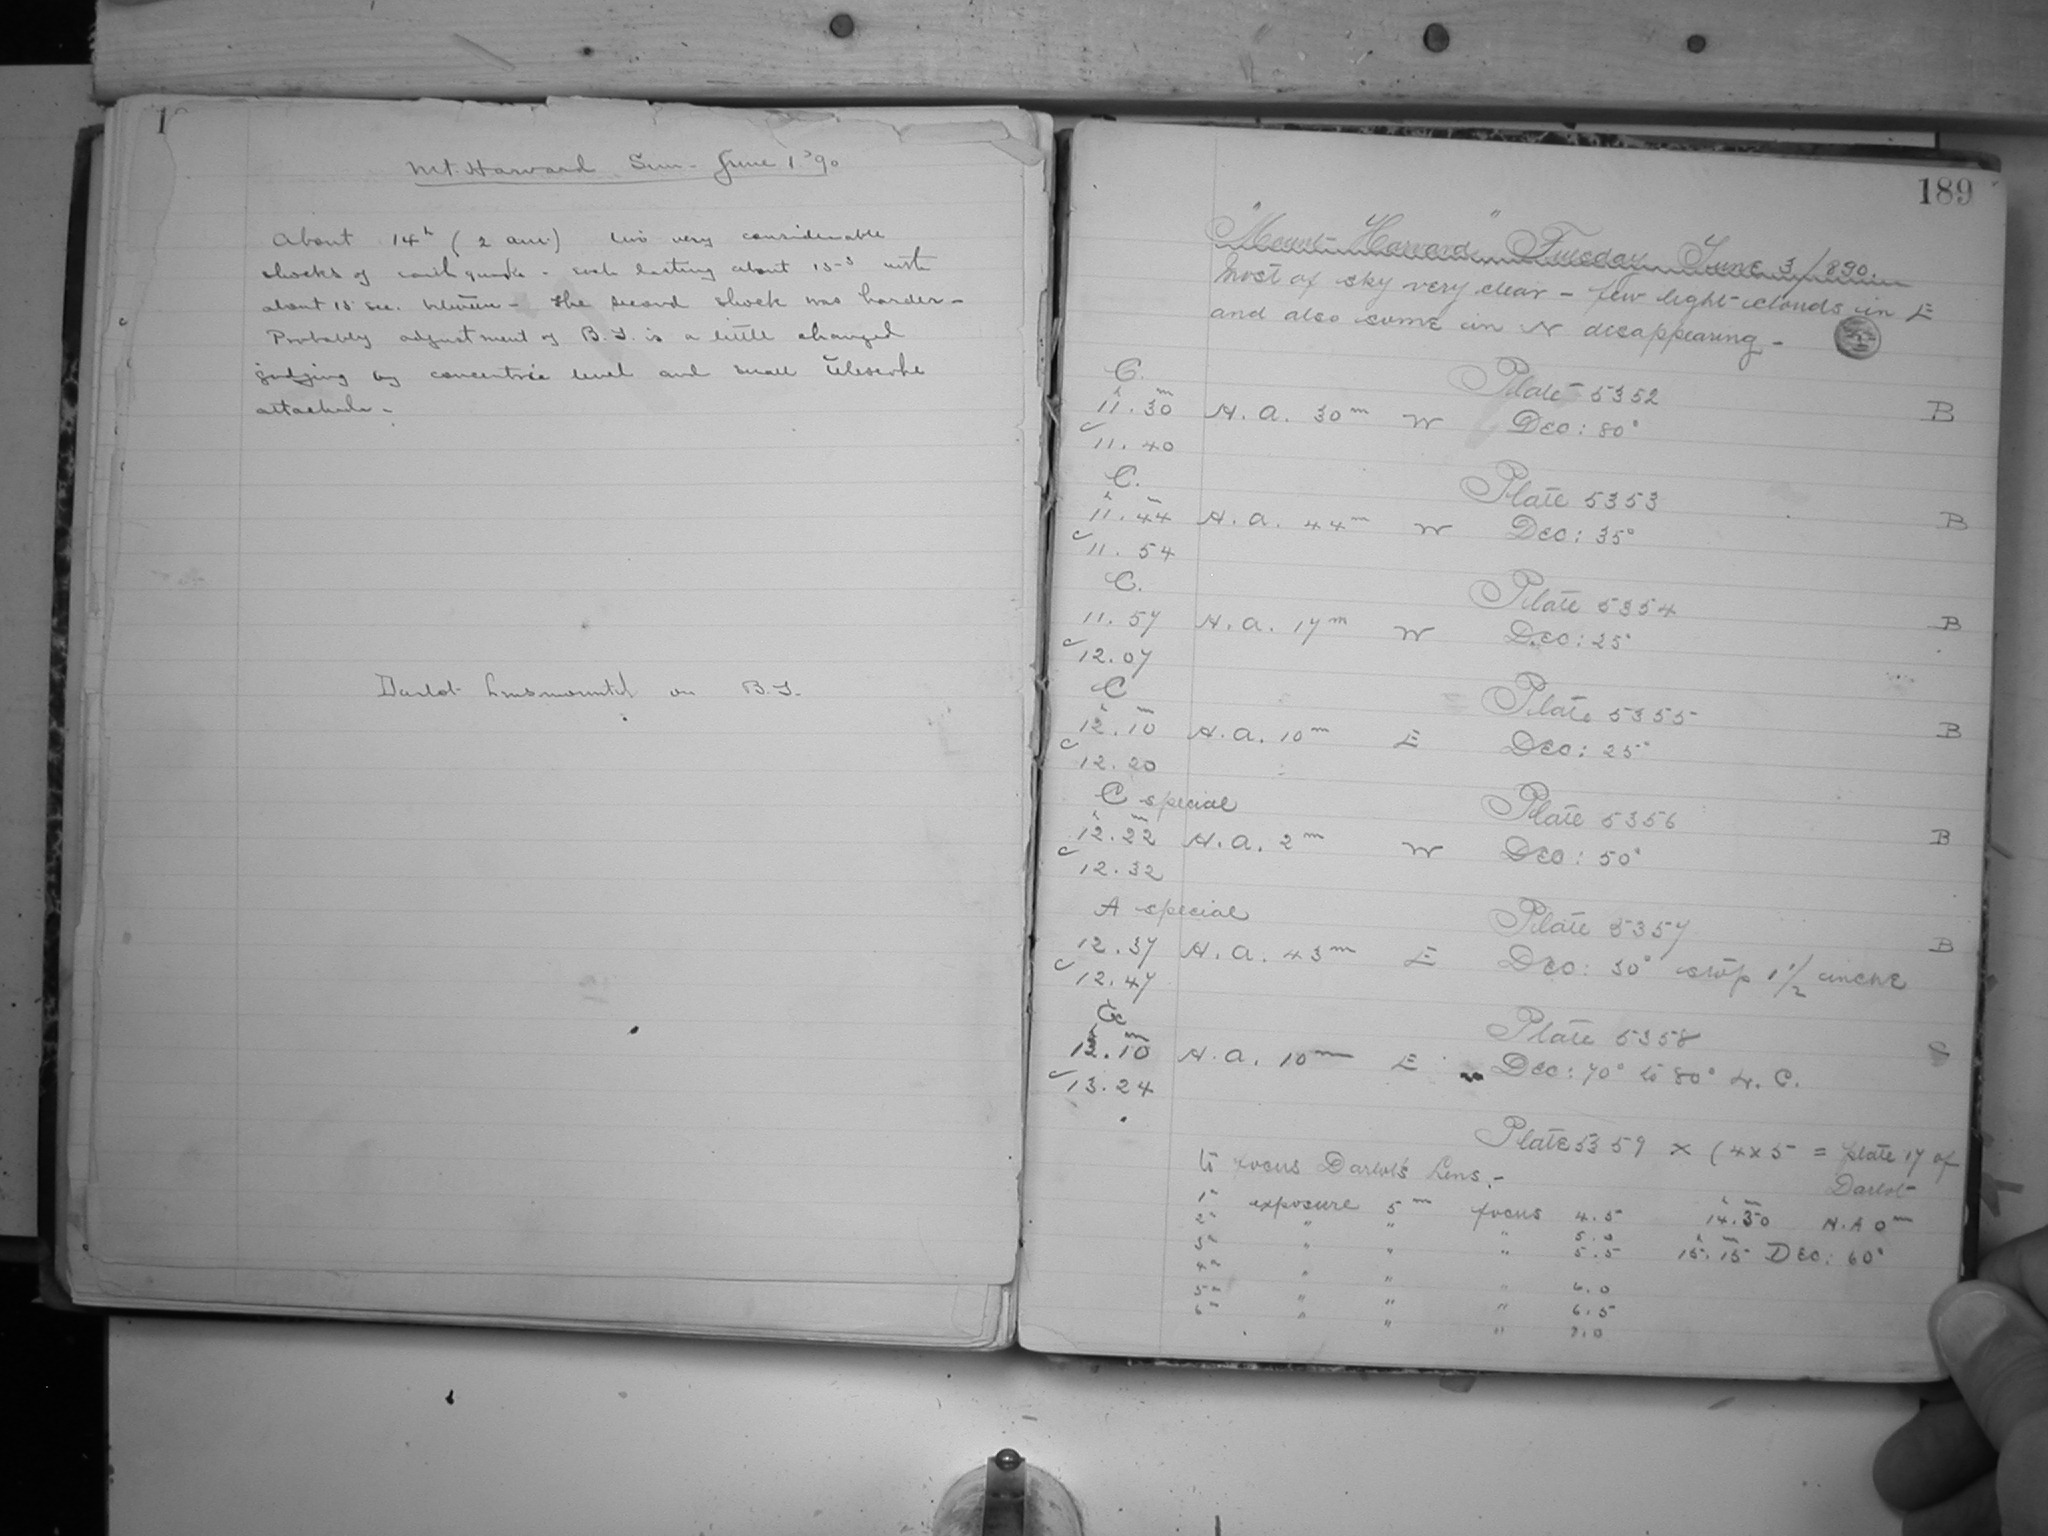 Mt. Harvard Sun- June 1. '90
About 14h (2 am) two very considerable
shocks of earthquake - each lasting about 15 s with
about 15 sec. between - the second shock was harder -
Probably adjustment of B.T. is a little changed
judging by concentric level and small telescope
attached -
Darlot Lens mounted on B.T.
189
"Mount Harvard" Tuesday June 3/890.
Most of sky very clear - few light clouds in E
and also some in N disappearing -
C. Plate 5352
11h.30m H.A. 30m W Dec: 80° B
11.40
C. Plate 5353
11h.44m H.A. 44m W Dec: 35° B
11.54
C. Plate 5354
11.57 H.A. 17m W Dec: 25° B
12.07
C Plate 5355
12h.10m H.A. 10m E Dec: 25° B
12.20
C special Plate 5356
12h.22m H.A. 2m W Dec: 50° B
12.32
A special Plate 5357
12.37 H.A. 43m E Dec: 30° stop 1 1/2 inche B
12.47
Plate 5358
.10m H.A. 10m E Dec: 70° to 80° L.C.
13.24
Plate 5359 x (4x5 = plate 17 of
Darlot
to focus Darlot's Lens.-
1" exposure 5m focus 4.5 14h.50m H.A 0m
2" " " " 5.0
3" " " " 5.5 15h.15m Dec: 60°
4" " " " 6.0
5" " " " 6.5
6" " " " 7.0